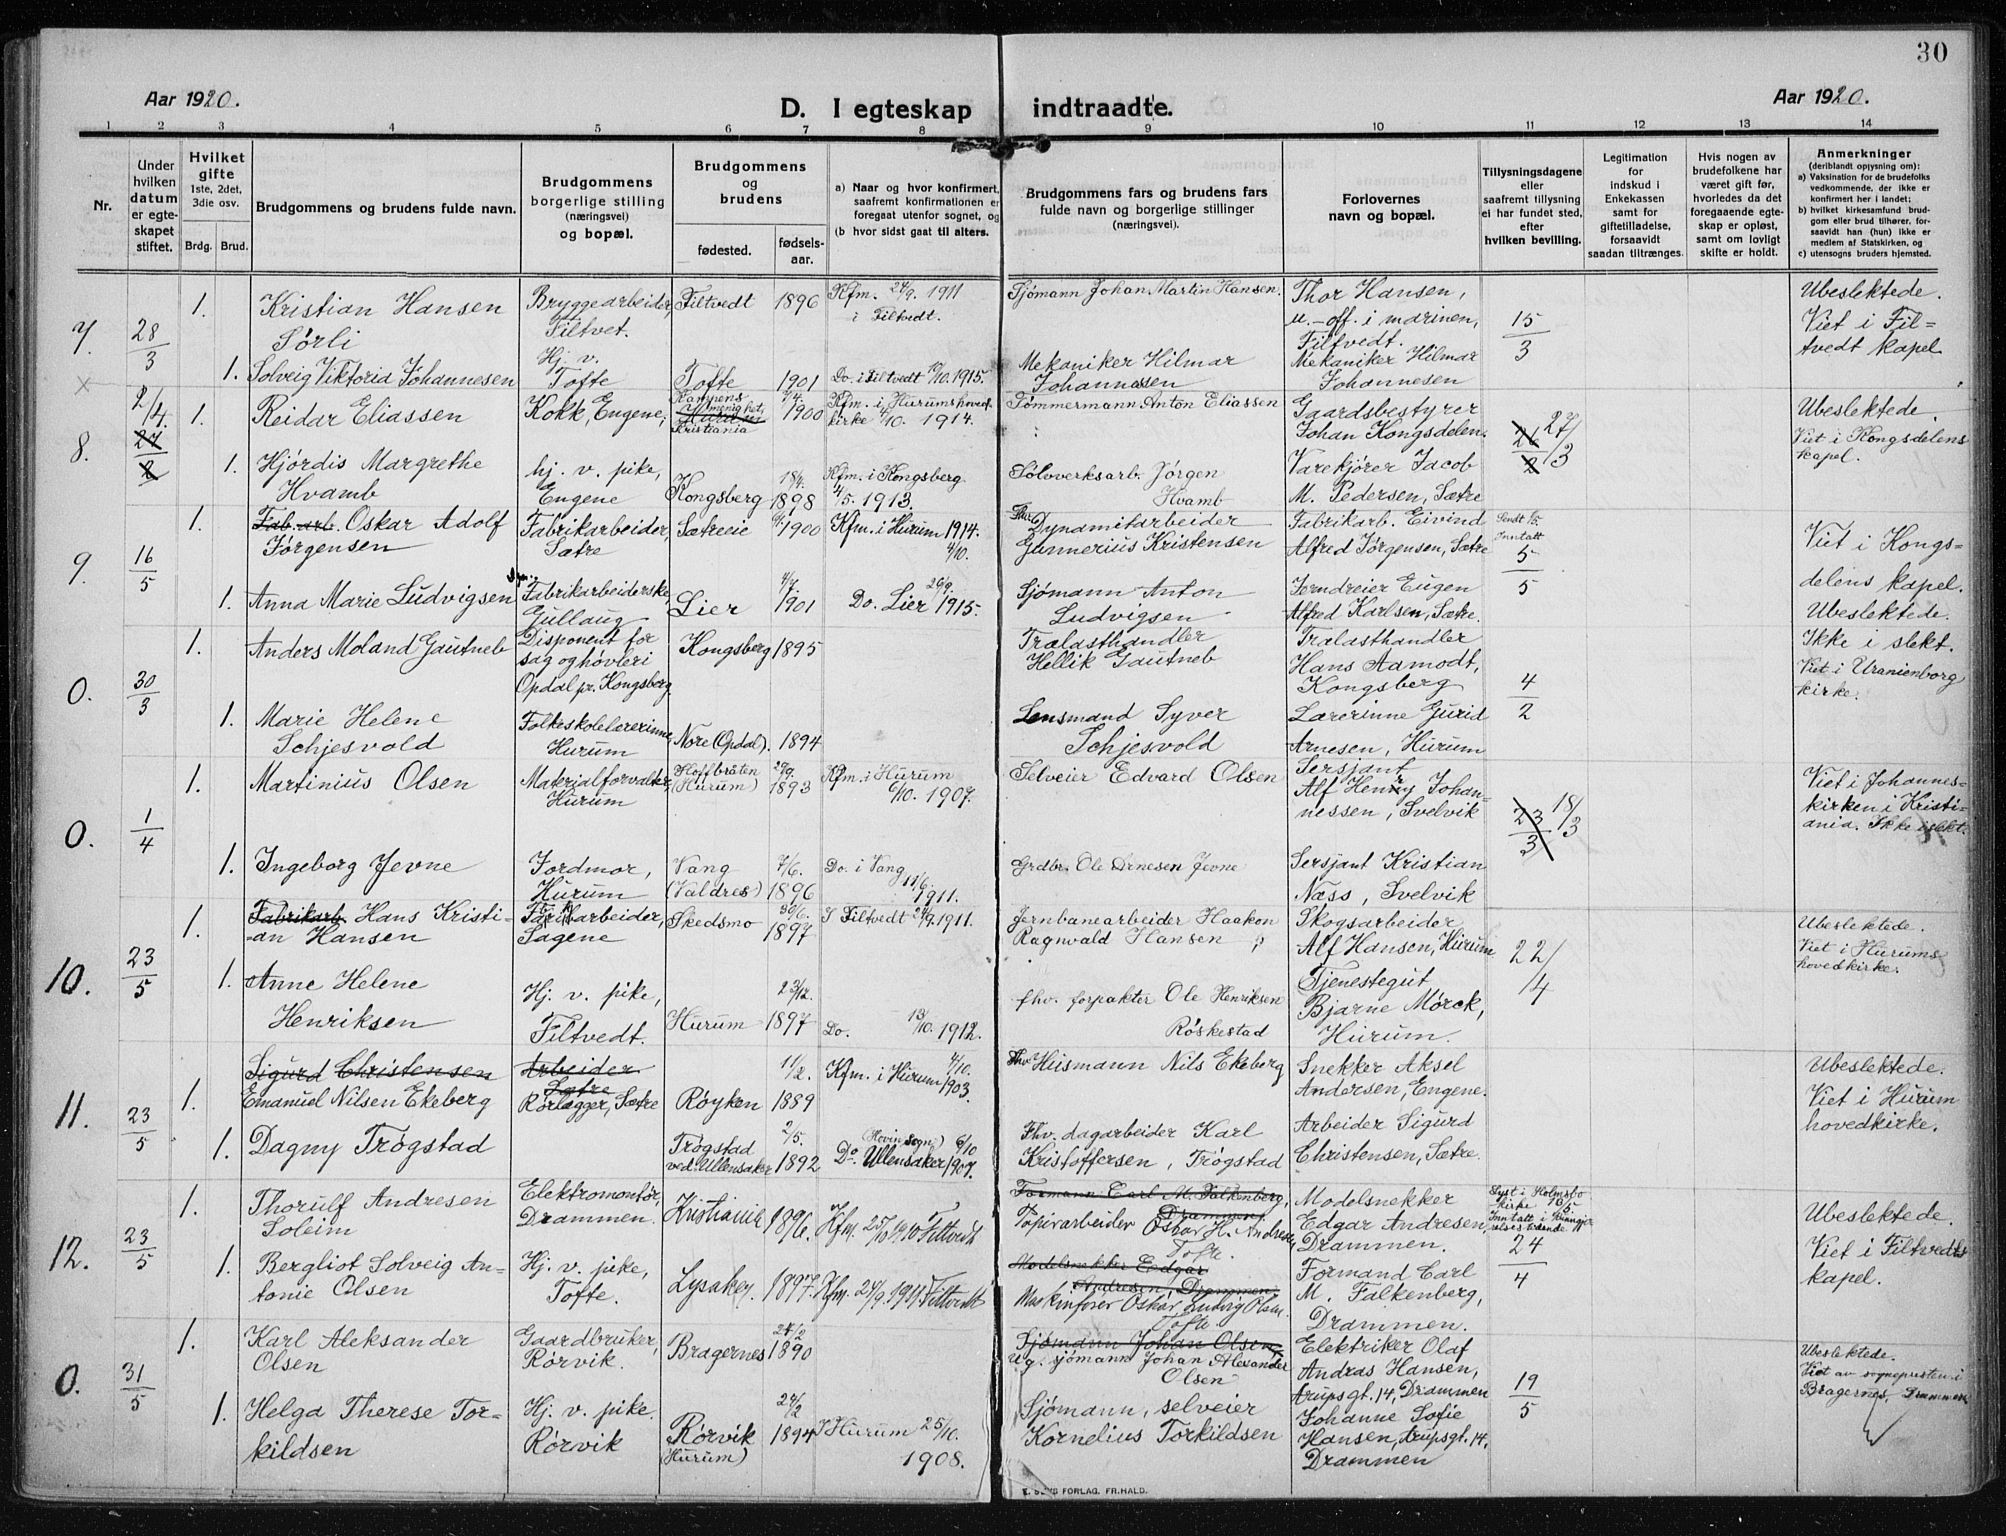 30
Aar 1920.
D. I egteskap indtraadte.
Aar 1920.
1 2 3 4 5 6 7 8 9 10 11 12 13 14
Nr.
Under
hvilken
datum
er egte-
skapet
stiftet.
Hvilket
gifte
1ste, 2det,
3die osv.
Brdg. Brud.
Brudgommens og brudens fulde navn.
Brudgommens
borgerlige stilling
(næringsvei)
og bopæl.
Brudgommens
og
brudens
fødested.
fødsels-
aar.
a) Naar og hvor konfirmert,
saafremt konfirmationen er
foregaat utenfor sognet, og
(b hvor sidst gaat til alters.
Brudgommens fars og brudens fars
fulde navn og borgerlige stillinger
(næringsvei).
Forlovernes
navn og bopæl.
Tillysningsdagene
eller
saafremt tillysning
ei har fundet sted,
efter
hvilken bevilling.
Legitimation
for
indskud i
Enkekassen
samt for
giftetilladelse,
forsaavidt
saadan tiltrænges.
Hvis nogen av
brudefolkene har
været gift før,
hvorledes da det
foregaaende egte-
skap er opløst,
samt om lovlig
skifte er holdt.
Anmerkninger
(deriblandt opysning om):
a) Vaksination for de brudefolks
vedkommende, der ikke er
konfirmert her i landet;
b) hvilket kirkesamfund brud-
gom eller brud tilhører, for-
saavidt han (hun) ikke er
medlem af Statskirken, og
c) utensogns bruders hjemsted.
7. 28/3
1. Kristian Hansen
Sørli
Bryggearbeider,
Filtvet.
Filtvedt 1896
Kfm. 24/9. 1911
i Filtvedt.
Sjømann Johan Martin Hansen.
Thor Hansen,
u.-off. i marinen,
Filtvedt.
15/3
Ubeslektede.
Viet i Fil=
tvedt kapel
1. Solveig Viktoria Johannesen
Hj. v.
Tofte
Tofte 1901
Do. i Filtvedt 10/10. 1915.
Mekaniker Hilmar
Johannessen
Mekaniker Hilmar
Johannesen
8. 2/4. 27/2
1. Reidar Eliassen
Kokk, Engene,
Kampens
menighet,
Kristiania
1900
Kfm. i Hurums hoved-
kirke 4/10. 1914.
Tømmermann Anton Eliassen
Gaardsbestyrer
Johan Kongsdelen.
26/2 27/3
Ubeslektede.
Viet i Kongsdelens
kapel.
1. Hjørdis Margrethe
Hvamb
hj. v. pike,
Engene
Kongsberg 18/4. 1898
Kfm. i Kongsberg
4/5. 1913.
Sølvverksarb. Jørgen
Hvamb
Varekjører Jacob
M. Pedersen, Sætre
9. 16/5
1. Fab.arb. Oskar Adolf
Jørgensen
Fabrikarbeider,
Sætre
Sætreeie 1900
Kfm. i Hurum 1914.
4/10.
Dynamitarbeider
Gunnerius Kristensen
Fabrikarb. Eivind
Alfred Jørgensen, Sætre
5/5
Viet i Kongs=
delens kapel.
Ubeslektede.
1. Anna Marie Ludvigsen
Fabrikarbeiderske,
Gullaug
Lier 4/7 1901
Do. Lier 26/9. 1915.
Sjømann Anton
Ludvigsen
Jerndreier Eugen
Alfred Karlsen, Sætre.
0. 30/3
1. Anders Moland Gautneb
Disponent for
sag og høvleri
Opdal pr. Kongsberg
Kongsberg 1895
Trælasthandler
Hellik Gautneb
Trælasthandler
Hans Aamodt,
Kongsberg
4/2
Ikke i slekt.
Viet i Uranienborg
kirke.
1. Marie Helene
Schjesvold
Folkeskolelærerinne,
Hurum
Nore (Opdal). 1894
Lensmand Syver
Schjesvold
Lærerinne Gurid
Arnesen, Hurum
0. 1/4
1. Martinius Olsen
Materialforvalter,
Hurum
Hoffbråten
(Hurum) 29/9. 1893
Kfm. i Hurum
6/10. 1907.
Selveier Edvard Olsen
Sersjant
Alf Henry Johan-
nessen, Svelvik
23/3 18/3
Viet i Johannes-
kirken i Kristi-
ania. Ikke i slekt.
1. Ingeborg Jevne
Jordmor,
Hurum
Vang
(Valdres) 7/6. 1896
Do. i Vang
11/6. 1911.
Grdbr. Ole Arnesen Jevne
Sersjant Kristian
Næss, Svelvik
10. 23/5
1. Fabrikarb. Hans Kristi-
an Hansen
Fabrikarbeider,
Sagene
Skedsmo 30/6. 1897
I Filtvedt 24/9. 1911.
Jernbanearbeider Haakon
Ragnvald Hansen
Skogsarbeider
Alf Hansen, Hurum
22/4
Ubeslektede.
Viet i Hurums
hovedkirke.
1. Anne Helene
Henriksen
Hj. v. pike,
Filtvedt.
Hurum 23/12. 1897
Do. 13/10. 1912.
fhv. forpakter Ole Henriksen
Røskestad
Tjenestegut
Bjarne Mørck,
Hurum.
11. 23/5
1. Sigurd Christensen
Emanuel Nilsen Ekeberg
Arbeider
Sætre
Rørlægger, Sætre
Røyken 11/2. 1889
Kfm. i Hurum 4/10. 1903.
Fhv. Husmann Nils Ekeberg
Snekker Aksel
Andersen, Engene.
Ubeslektede.
Viet i Hurum
hovedkirke.
1. Dagny Trøgstad
Trøgstad
ved Ullensaker 2/5. 1892
(Hovin sogn)
Do. Ullensaker 6/10 1907.
Fhv. dagarbeider Karl
Kristoffersen, Trøgstad
Arbeider Sigurd
Christensen, Sætre.
12. 23/5
1. Thorulf Andresen
Soleim
Elektromontør,
Drammen.
Kristiania 1896.
Kfm. 25/10 1910 Filtvedt
Formann Carl M. Falkenberg,
Drammen
Papirarbeider Oskar H. Andresen
Tofte.
Modelsnekker
Edgar Andresen,
Drammen.
Lyst i Holmsbo
kirke 16/5.
24/4
Ubeslektede.
Viet i Filtvedts
kapel.
1. Bergliot Solveig An-
tonie Olsen
Hj. v. pike,
Tofte.
Lysaker. 1897.
Kfm. 24/9. 1911 Filtvedt
Modelsnekker Edgar
Andresen, Drammen
Maskinfører Oskar Ludvig Olsen.
Tofte
Formand Carl
M. Falkenberg,
Drammen.
0. 31/5
1. Karl Aleksander
Olsen
Gaardbruker,
Rørvik.
Bragernes 24/2 1890
Sjømann Johan Olsen
Ug. sjømann Johan Alexander
Olsen
Elektriker Olaf
Andras Hansen,
Arupsgt. 14, Drammen
19/5
Ubeslektede.
Viet av sognepresten i
Bragernes, Drammen
1. Helga Therese Tor-
kildsen
Hj. v. pike.
Rørvik
Rørvik
(Hurum) 24/2 1894
I Hurum 25/10.
1908.
Sjømann, selveier
Kornelius Torkildsen
Johanne Sofie
Hansen, Arupsgt. 14,
Drammen
FORLAG. FR.HALD.